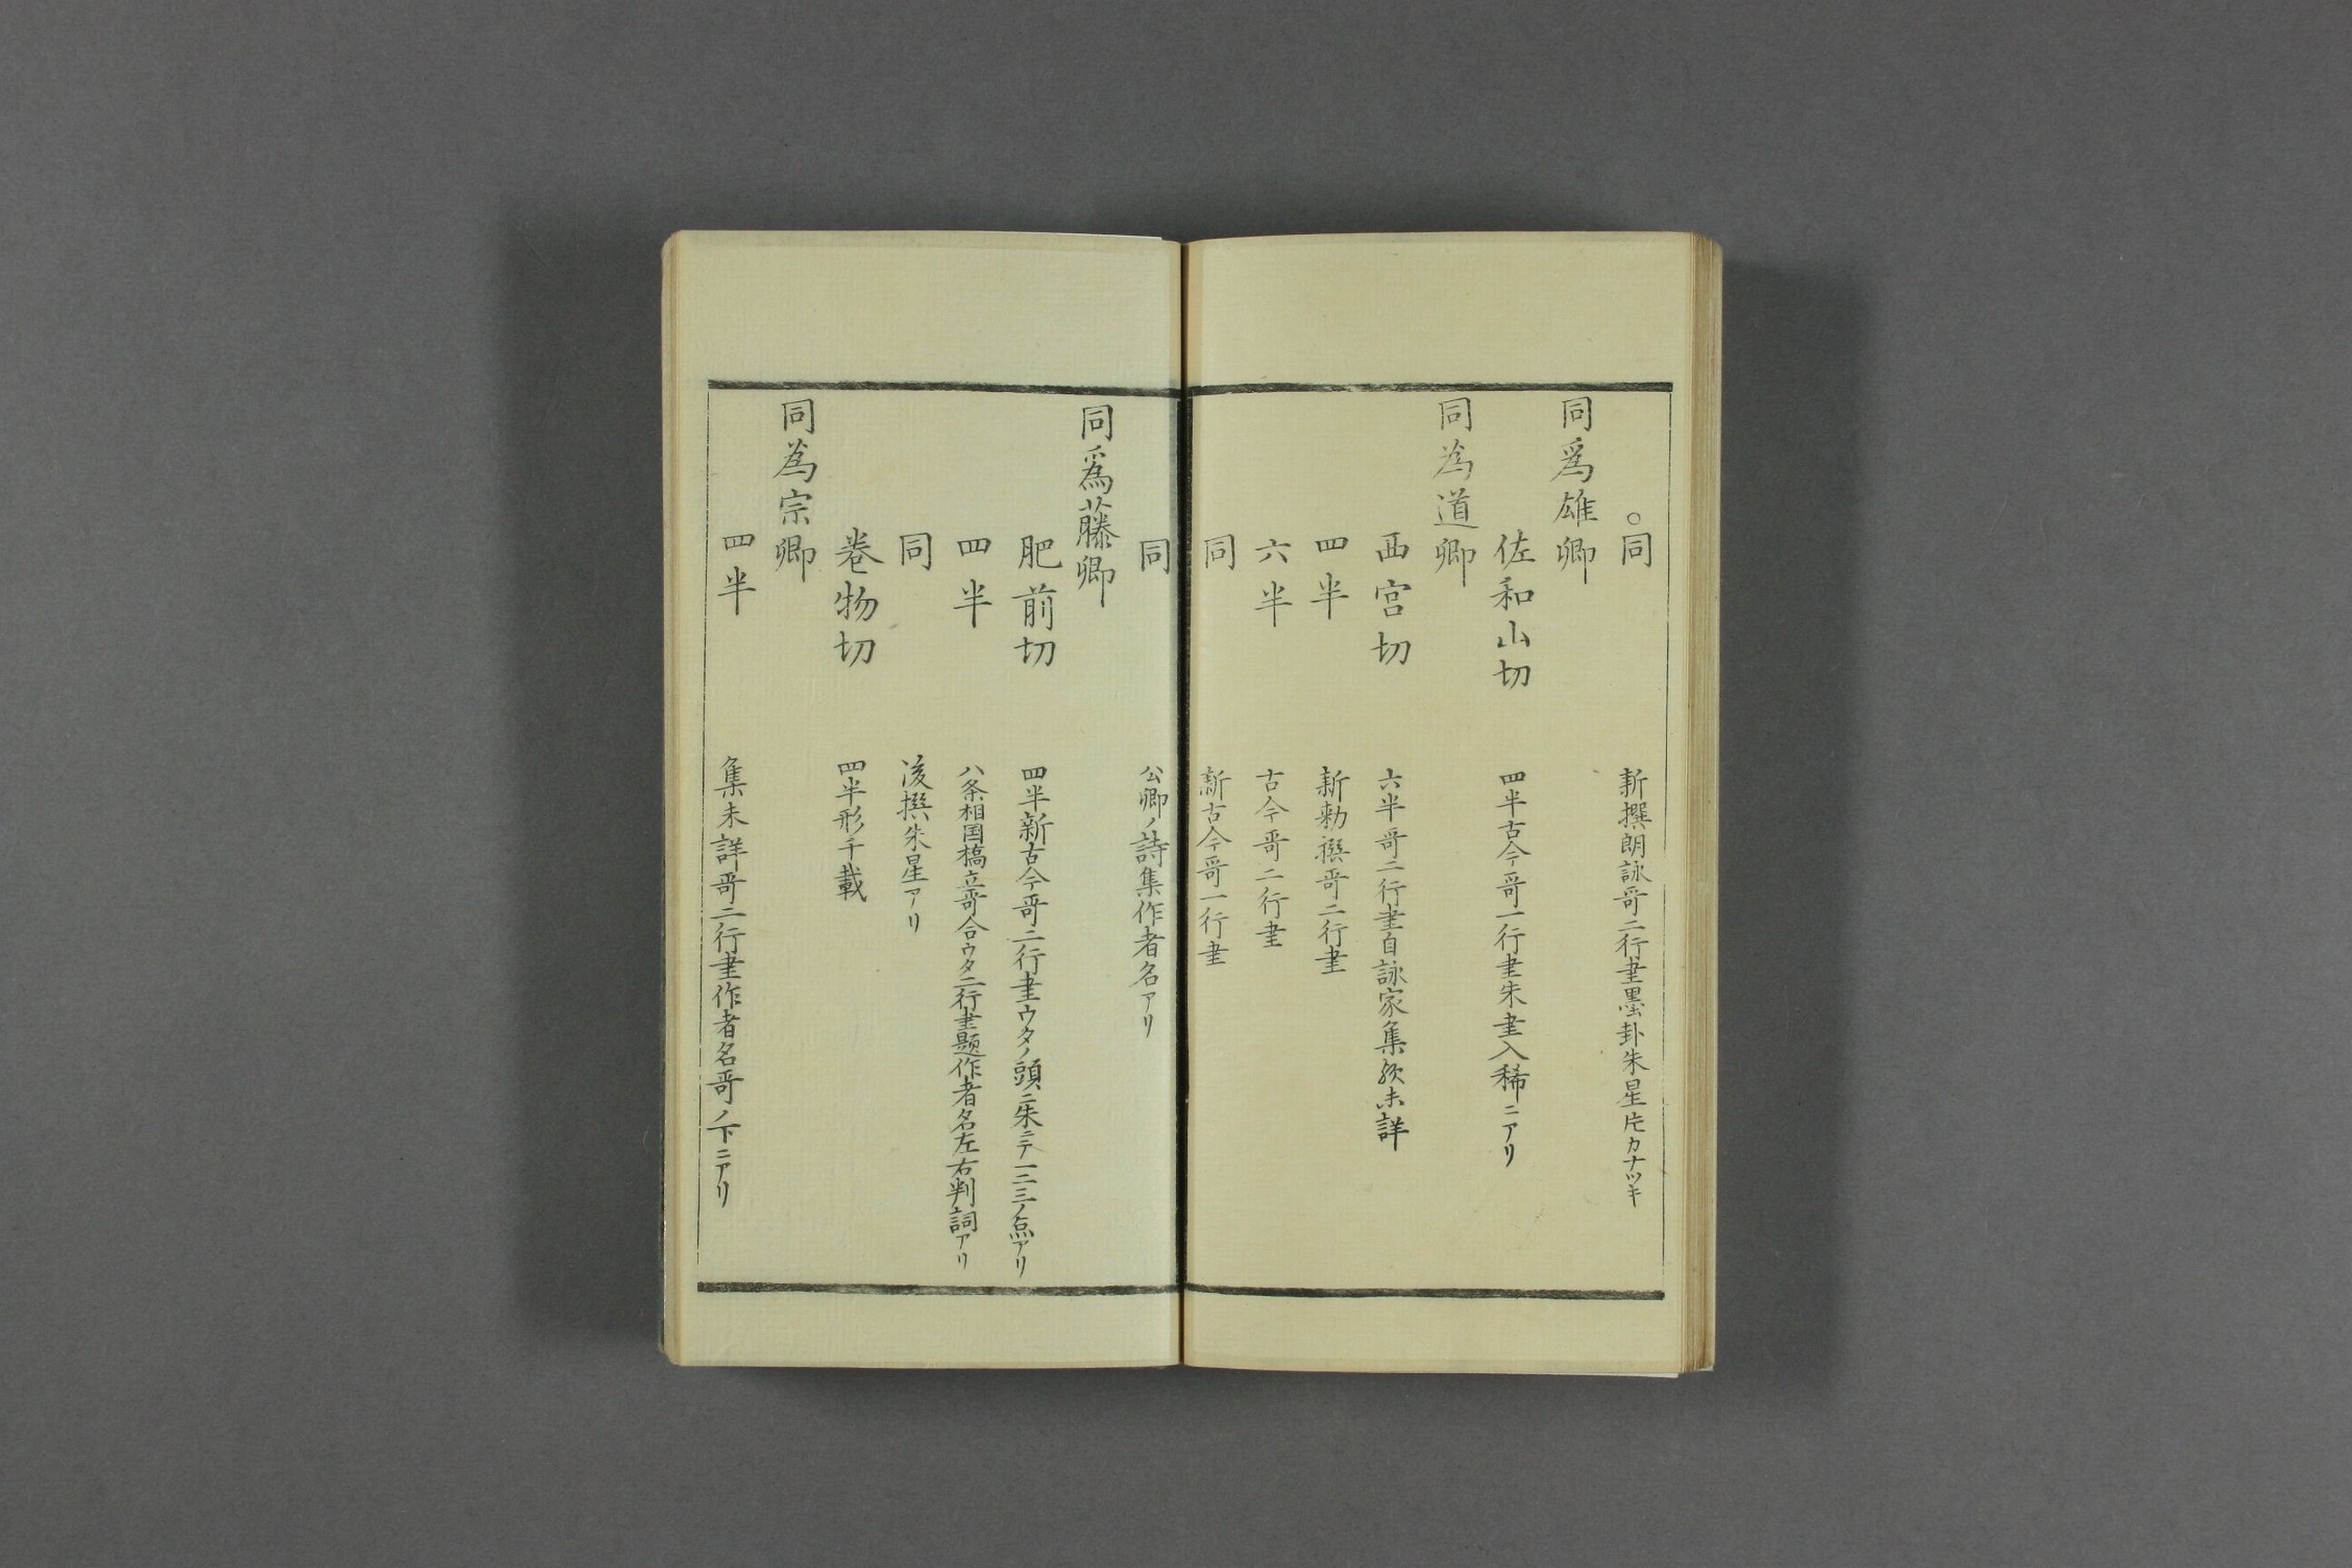 ○同　新撰朗詠哥二行書墨卦朱星片カナツキ
同爲雄卿
佐和山切　四半古今哥一行書朱書入稀ニアリ
同為道卿
西宮切　六半哥二行書自詠家集歟未詳
四半　新勅撰哥二行書
六半　古今哥二行書
同　新古今哥一行書
同　公卿ノ詩集作者名アリ
同爲藤卿
肥前切　四半新古今哥二行書ウタノ頭ニ朱ニテ一二三ノ点アリ
四半　八条相国橋立哥合ウタ二行書題作者名左右判詞アリ
同　後撰朱星アリ
巻物切　四半形千載
同為宗卿
四半　集未詳哥二行書作者名哥ノ下ニアリ